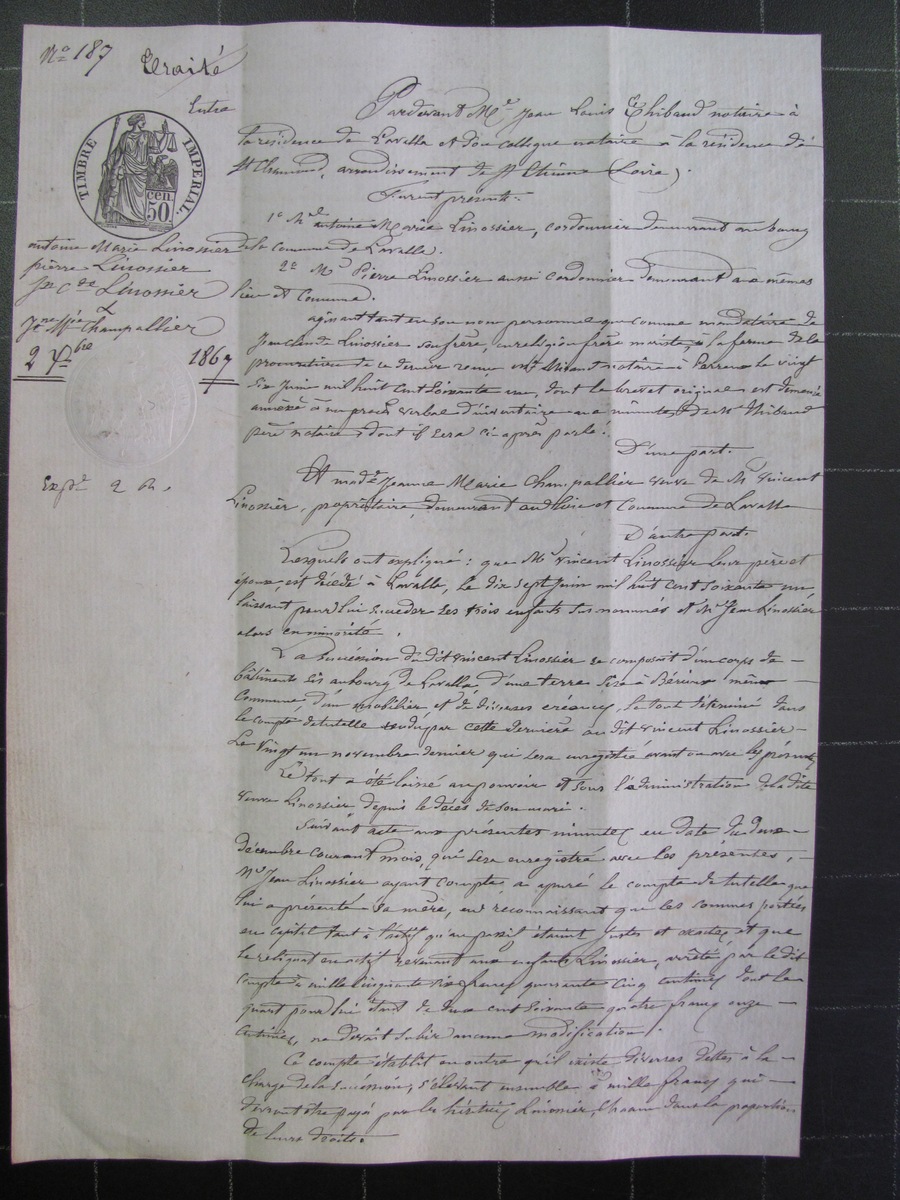 No 187
Traité
Entre
TIMBRE IMPERIAL
50 cen.
antoine Marie Linossier
pierre Linossier
Jn Cde Linossier
Jne Mie Champallier
2 Xbre 1867
Expn 2 R.
Pardevant Me Jean Louis Thibaud notaire à
la résidence de Lavalla et son collègue notaire à la résidence de
St Chamond, arrondissement de St Etienne (Loire).
Furent présents.
1o Mr antoine Marie Linossier, cordonnier demeurant au bourg
de la Commune de Lavalla.
2o Mr Pierre Linossier aussi cordonnier demeurant aux mêmes
lieu et Commune.
agissant tant en son nom personnel que comme mandataire de
Jean claude Linossier son frère, en religion frère mariste, à la forme de la
procuration de ce dernier reçue Me notaire à le vingt
six Juin mil huit cent soixante un, dont le brevet original est demeuré
annexé à un procès verbal d'inventaire aux minutes de Me Thibaud
père notaire, dont il sera ci après parlé.
D'une part.
Et made Jeanne Marie Champallier veuve de Mr Vincent
Linossier, propriétaire, demeurant audit lieu et Commune de Lavalla
D'autre part.
Lesquels ont expliqué : que Mr Vincent Linossier leur père et
époux, est décédé à Lavalla, le dix sept Juin mil huit cent soixante un
laissant pour lui succéder ses trois enfants sus nommés et Mr Jean Linossier
alors en minorité.
La succession dudit Vincent Linossier se composait d'un corps de
bâtiments sis au bourg de Lavalla, d'une terre sise à même
Commune, d'un mobilier et de diverses créances, le tout déterminé dans
le compte de tutelle rendu par cette dernière au dit vincent Linossier
Le vingt un novembre dernier qui sera enregistré avant ou avec les présentes
Le tout a été laissé au pouvoir et sous l'administration de la dite
veuve Linossier depuis le décès de son mari.
Suivant acte aux présentes minutes en date du deux
décembre courant mois, qui sera enregistré avec les présentes,
Mr Jean Linossier ayant compte, a apuré le compte de tutelle que
lui a présenté sa mère, en reconnaissant que les sommes portées
en capital tant à l'actif qu'au passif étaient justes et exactes et que
le reliquat en actif revenant aux enfants Linossier, arrêté par le dit
compte à mille cinquante six francs quarante cinq centimes dont le
quart pour lui étant de deux cent soixante quatre francs onze
centimes, ne devait subir aucune modification.
Ce compte établit en outre qu'il existe diverses dettes à la
charge de la succession, s'élevant ensemble à mille francs qui
devront être payés par les héritiers Linossier, chacun dans la proportion
de leurs droits.